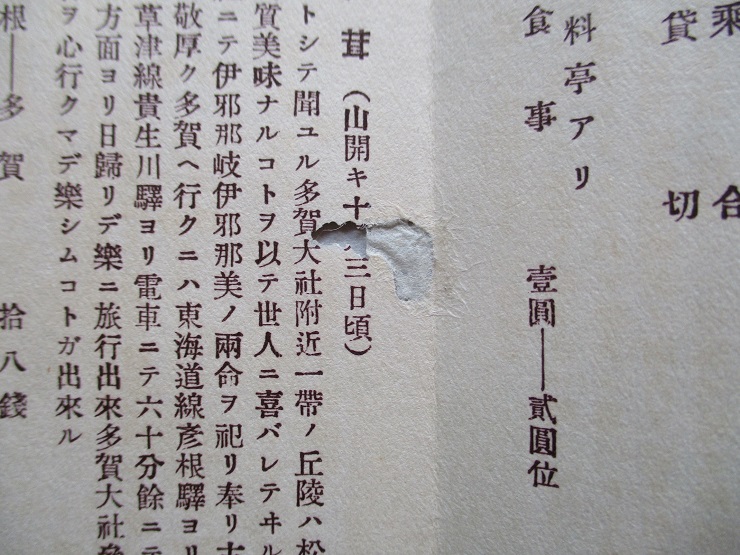 乘 合
貸 切
料亭アリ
食事 壹圓——貳圓位
茸(山開キ十 三日頃)
トシテ聞ユル多賀大社附近一帶ノ丘陵ハ松
質美味ナルコトヲ以テ世人ニ喜バレテヰル
ニテ伊邪那岐伊邪那美ノ兩命ヲ祀リ奉リ古
敬厚ク多賀ヘ行クニハ東海道線彥根驛ヨリ
草津線貴生川驛ヨリ電車ニテ六十分餘ニテ
方面ヨリ日歸リデ樂ニ旅行出來多賀大社參
ヲ心行クマデ樂シムコトガ出來ル
根——多賀 拾八錢